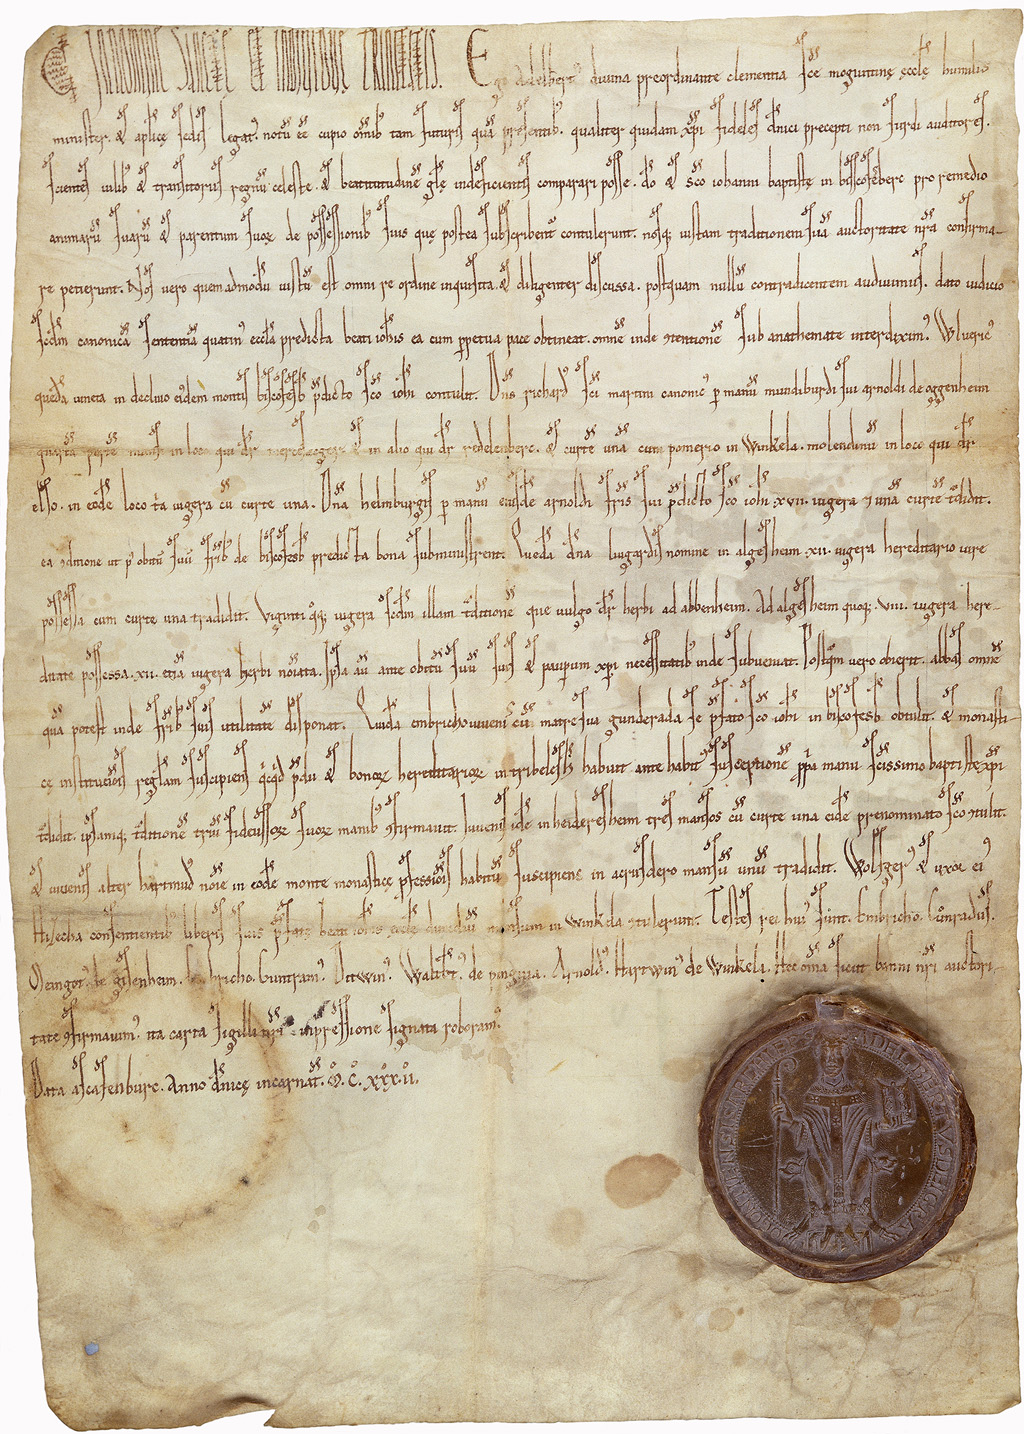 IN NOMINE SANCTĘ ET INDIVIDUE TRINITATIS. Ego Adelbert' divina preordinante clementia sce moguntinę ęcclę humilis
minister. & aplicę sedis legat'. notū eē cupio omīb' tam futuris quā presentib'. qualiter quidam xp̄i fideles dn̄ici precepti non surdi auditores.
scientes vilib' & transitoriis regnū celeste. & beatitudinē glę indeficientis comparari posse. do & sco iohanni baptistę in biscofesberc pro remedio
animarū suarū & parentum suoꝝ de possessionib' suis quę postea subscribent' contulerunt. nosq; iustam traditionem suā auctoritate nr̄a confirma-
re petierunt. Nos vero quemadmodū iustū est omni re ordine inquisita. & diligenter discussa. postquam nullū contradicentem audivimus. dato iudicio
scdm canonicā sententiā quatin' ęccla predicta beati iohis ea cum perpetua pace obtineat. omnē inde ꝯtentionē sub anathemate interdixim'. Wlveric'
quedā cuncta in declivo eidem montis biscofesb p̄dicto sco iohi contulit. Dn̄s richard' sci martini canonic' p manū mundiburdi sui arnoldi de oggenheim
quartā partē in loco qui dr & in alio qui dr redelenberc. & curtē unā cum pomerio in Winkela. molendinū in loco qui dr
elso. in eodē loco tā iugera cū curte una. Dn̄a heimburgis p manū eiusdē arnoldi fr̄is sui p̄dicto sco iohi .xvii. iugera ⁊ unā curtē tdidit.
ea ꝯditione ut p' obitū suū fr̄ib' de biscofesb predicta bona subministrent. Quedā dn̄a lugardis nomine in algesheim .xii. iugera hereditario iure
possessa cum curte una tradidit. Viginti q'q; iugera scdm illam tditionē que vulgo dr herbi ad abbenheim. Ad algesheim quoq; .viii. iugera here-
ditate possessa. xii. etiā iugera herbi noviata. Ipsa aū ante obitū suū suis & paupum xp̄i necessitatib' inde subveniat. Postqm vero obierit. abbas omne
quā potest inde fr̄ib' suis utilitate disponat. Quidā embricho iuvenis cū matre sua gunderada se p̄fato sco iohi in biscofesb obtulit. & monasti-
cę institutiōis reglam suscipiens qcqd p̄dii & bonoꝝ hereditarioꝝ in tribelesh habuit ante habit' susceptionē pp̄a manu scissimo baptistę xp̄i
tdidit. ipsamq; tditionē triū fideiussoꝝ suoꝝ manib' ꝯfirmavit. Iuvenis idē in heideresheim tres mansos cū curte una eidē prenominato sco ꝯtulit.
& iuvenis alter hartmud' noie in eodē monte monasticę p̄fessiōis habitū suscipiens in acrusdero mansū unū tradidit. Wolfger' & uxor ei'
Hisecha consentientib' liberis suis p̄fatę beati iohis ęcclę dimidiū mansum in winkela ꝯtulerunt. Testes rei hui' sunt. Embricho. Cunradus.
Meingot'. de gisenheim. Embricho. Guntram'. Otwin'. Walbt'. de pinguia. Arnold'. Hartwin' de Winkela. Hec omia sicut banni nr̄i auctori-
tate ꝯfirmavim'. ita carta sigilli nr̄i inpressione signata roboram'.
Data ascafenburc. Anno dn̄icę incarnat. M. C. XXX. II.